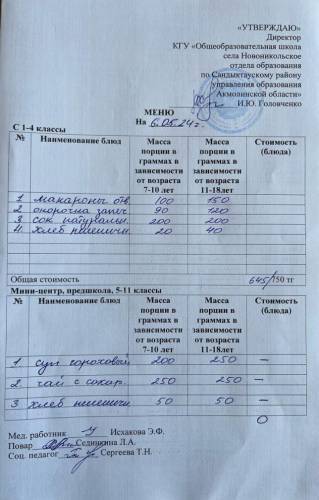 «УТВЕРЖДАЮ»
Директор
КГУ «Общеобразовательная школа
села Новоникольское
отдела образования
по Сандыктаускому району
управления образования
Акмолинской области»
И.Ю. Головченко
МЕНЮ
На 6.05.24г.
С 1-4 классы
№ Наименование блюд Масса порции в граммах в зависимости от возраста 7-10 лет Масса порции в граммах в зависимости от возраста 11-18лет Стоимость (блюда)
1 макароны отв. 100 150
2 окорочка запеч. 90 120
3 сок натуральн. 200 200
4. хлеб пшеничн. 20 40
Общая стоимость 645/750 тг
Мини-центр, предшкола, 5-11 классы
№ Наименование блюд Масса порции в граммах в зависимости от возраста 7-10 лет Масса порции в граммах в зависимости от возраста 11-18лет Стоимость (блюда)
1. суп гороховый 200 250 —
2. чай с сахар. 250 250 —
3 хлеб пшеничн 50 50 —
0
Мед. работник Исхакова Э.Ф.
Повар Сединкина Л.А.
Соц. педагог Сергеева Т.Н.